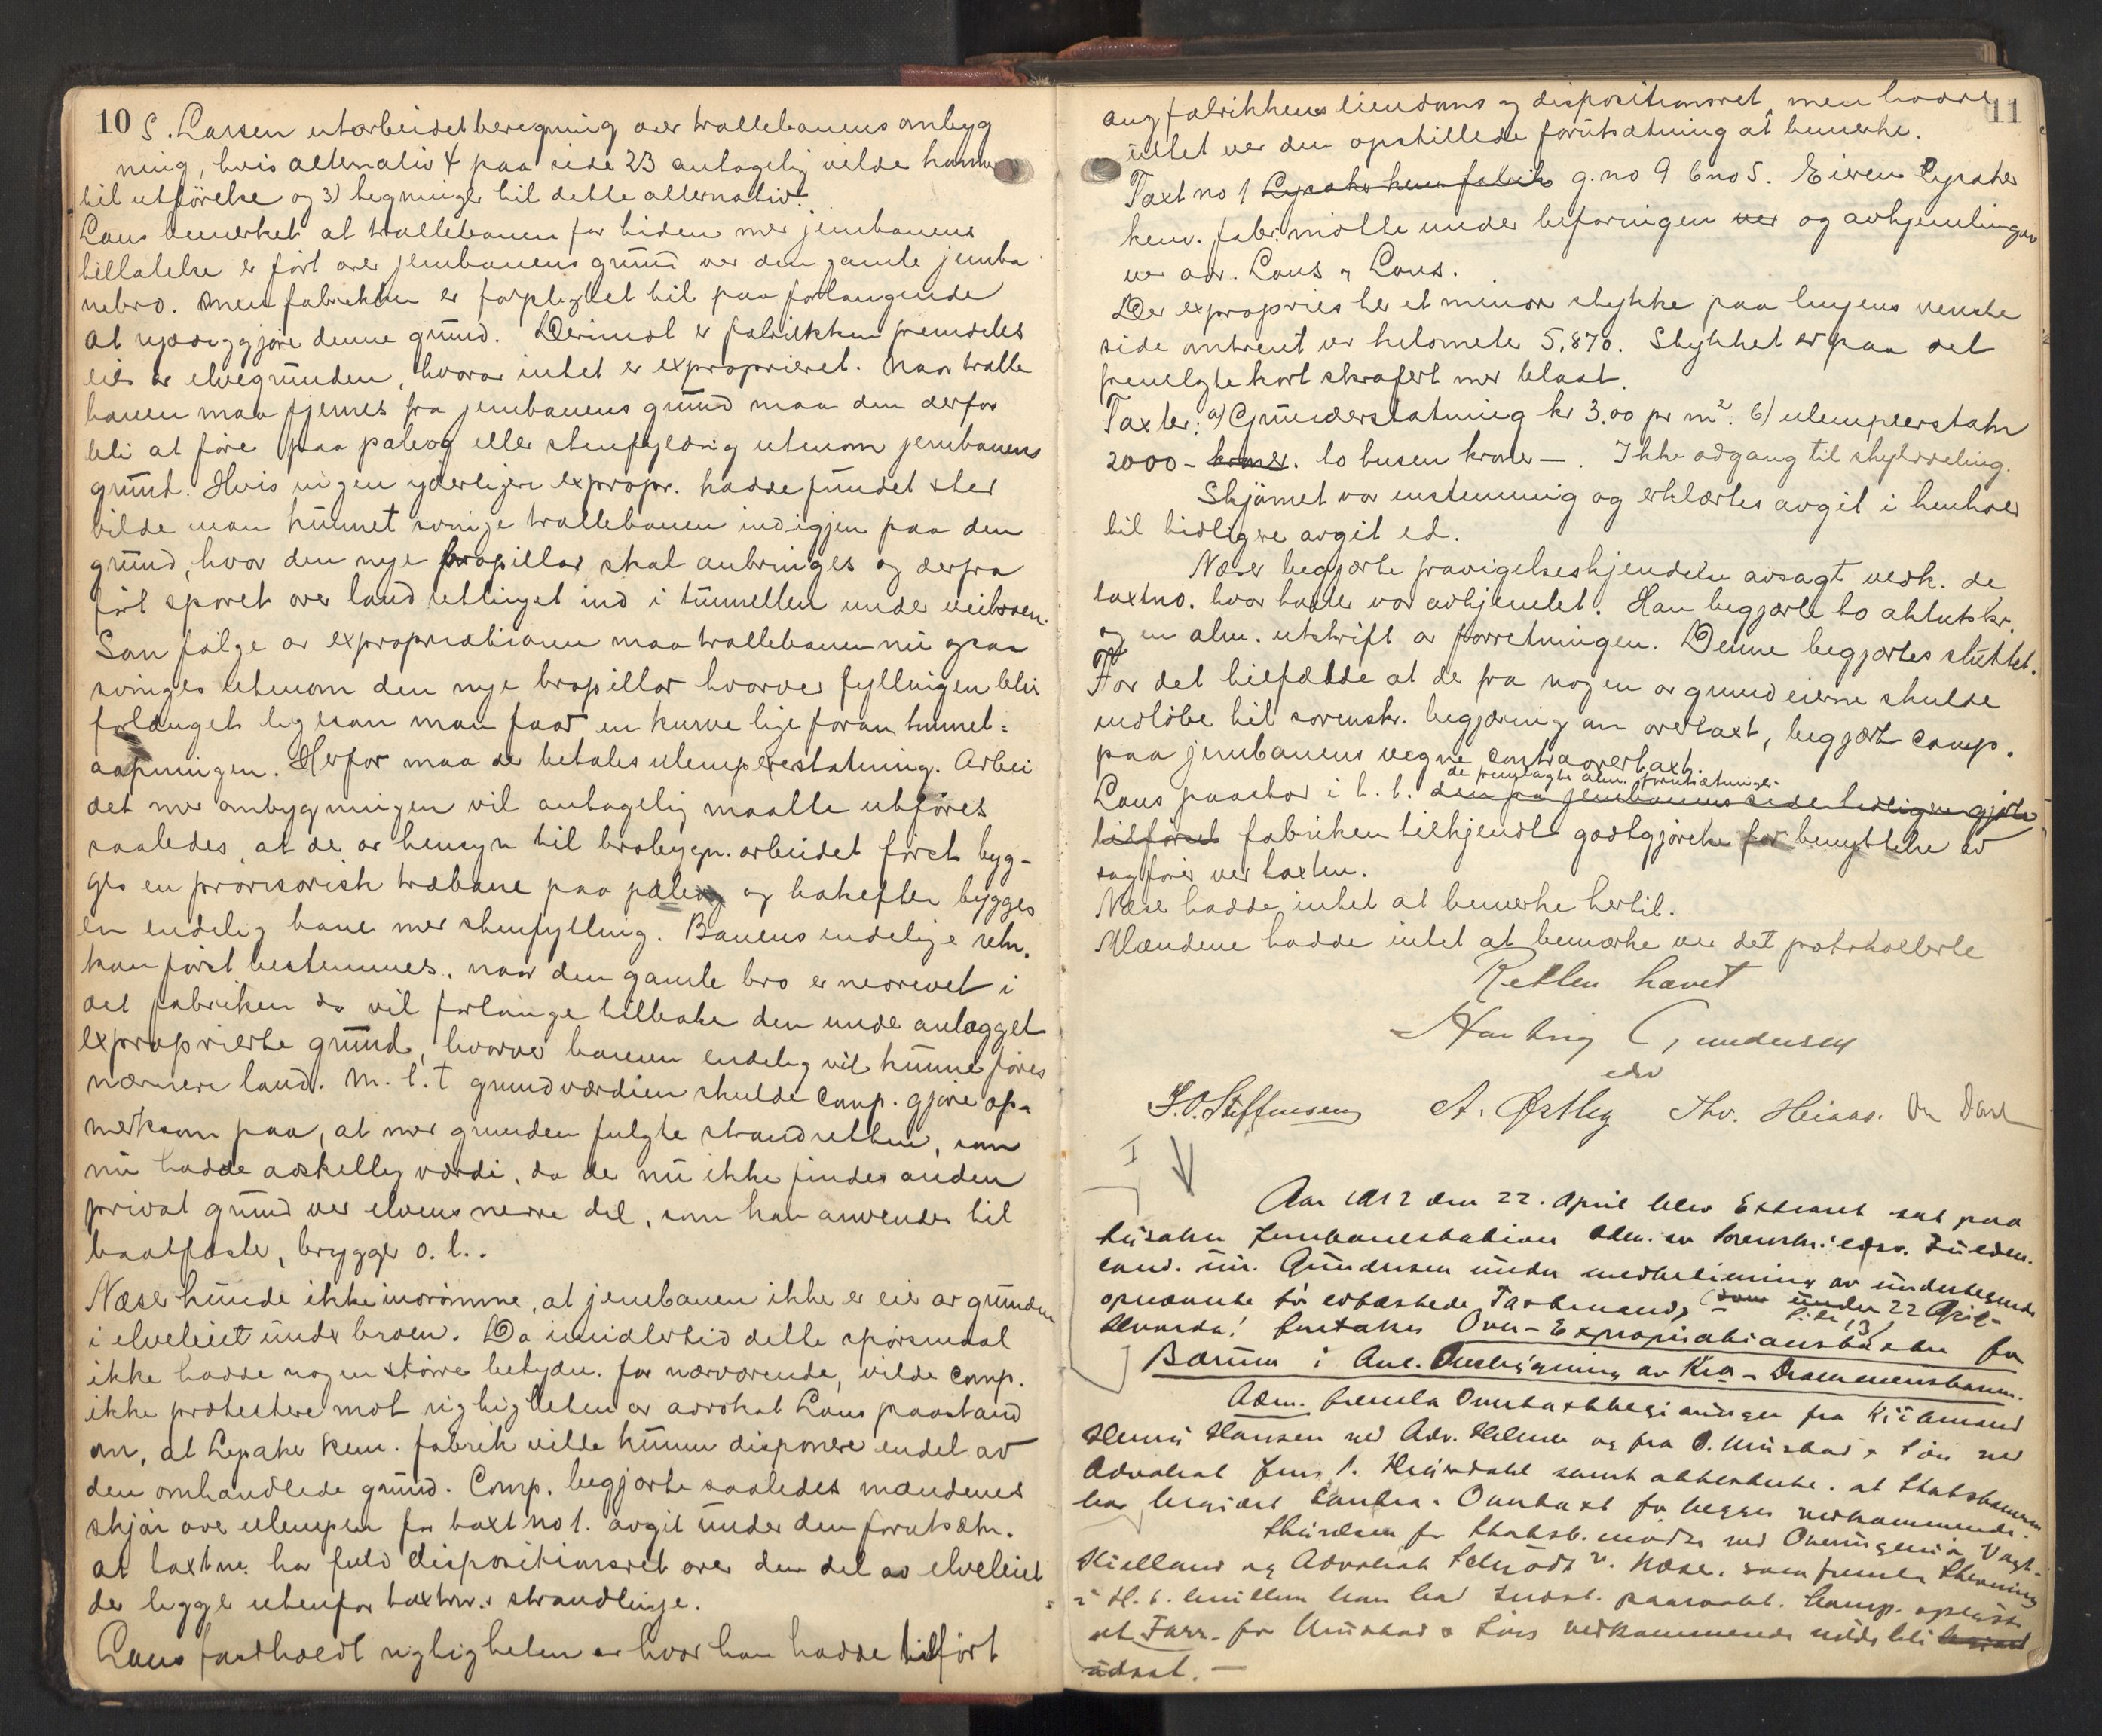 10 S. Larsen utarbeidet beregning over trallebanens ombyg
ning, hvis alternativ 4 paa side 23 antagelig vilde komme
til utförelse og 3) tegninger til dette alternativ.
Lous bemerket at trallebanen for tiden med jernbanens
tillatelse er fört over jernbanens grund ved den gamle jernba
nebro. Men fabrikken er forpligtet til paa forlangende
at ryddiggjöre denne grund. Derimot er fabrikken fremdeles
eier av elvegrunden, hvorav intet er exproprieret. Naar tralle
banen maa fjernes fra jernbanens grund maa den derfor
bli at före paa pæleaag eller stenfyldning utenom jernbanens
grund. Hvis ingen yderligere expropr. hadde fundet sted
vilde man kunnet svinge trallebanen ind igjen paa den
grund, hvor den nye bropillar skal anbringes og derfra
fört sporet over land ind i tunnellen under veibroen.
Som fölge av expropriationen maa trallebanen nu ogsaa
svinges utenom den nye bropillar hvorved fyllingen blir
forlænget ligesom man faar en kurve lige foran tunnel=
aapningen. Herfor maa der betales ulempeerstatning. Arbei
det med ombygningen vil antagelig maatte utföres
saaledes, at der av hensyn til brobygn. arbeidet först byg-
ges en provisorisk træbane paa pæleaag og bakefter bygges
en endelig bane med stenfylling. Banens endelige retn.
kan först bestemmes, naar den gamle bro er nedrevet i
det fabriken da vil forlange tilbake den under anlægget
exproprierte grund, hvorved banen endelig vil kunne föres
nærmere land. M. h. t grundværdien skulde Comp. gjöre op-
merksom paa, at med grunden fulgte strandretten, som
nu hadde adskillig værdi, da der nu ikke findes anden
privat grund ved elvens nedre del, som kan anvendes til
baatfæste, brygger o. l..
Næser kunde ikke indrömme, at jernbanen ikke er eier av grunden
i elveleiet under broen. Da imidlertid dette spörsmaal
ikke hadde nogen större betydn. for nærværende, vilde Comp.
ikke protestere mot rigtigheten av advokat Lous paastand
om, at Lysaker kem. fabrik vilde kunne disponere endel av
den omhandlede grund. Comp. begjærte saaledes mændenes
skjön over ulempen for taxt no 1. avgit under den forutsætn.
at taxtnr. har fuld dispositionsret over den del av elveleiet
der ligger utenfor taxtnr.s strandlinje.
Lous fastholdt rigtigheten av hvad han hadde tilfört
11
ang fabrikkens eiendoms og dispositionsret, men hadde
intet ved den opstillede forutsætning at bemerke.
Taxt no 1 Lysaker kem. fabrik g. no 9 b no 5. Eieren Lysaker
kem. fabr. mötte under befaringen ved og avhjemlingen
ved adv. Lous & Lous.
Der exproprieres her et mindre stykke paa linjens venstre
side omtrent ved kilometer 5,870. Stykket er paa det
fremlagte kart skrafert med blaat.
Taxter: a) Grunderstatning kr 3.00 pr m². b) ulempeerstatn
2000 - kroner. to tusen kroner —. Ikke adgang til skylddeling.
Skjönnet var enstemmig og erklærtes avgit i henhold
til tidligere avgit ed.
Næser begjærte fravigelseskjendelse avsagt vedk. de
taxtno. hvor taxter var avhjemlet. Han begjærte to aktutskr.
og en alm. utskrift av forretningen. Denne begjærtes sluttet.
For det tilfælde at der fra nogen av grundeierne skulde
indlöbe til sorenskr. begjæring om overtaxt, begjærte Comp.
paa jernbanens vegne contraovertaxt.
de fremlagte alm. forutsætninger
Lous paastod i h. t. den fra jernbanens side tidligere gjorte
tilförsel fabriken tilkjendt godtgjörelse for benyttelse av
sagförer ved taxten.
Næser hadde intet at bemerke hertil.
Mændene hadde intet at bemærke ved det protokollerte
Retten hævet
Harbrig Gundersen
edsv
S. O. Steffensen A. Østby Thv. Heiaas.
I
Aar 1912 den 22. April blev Extraret sat paa
Lysaker Jernbanestation adm. av Sorenskr.s edsv. Fuldm.
cand. jur. Gundersen under medbetjening av undertegnede
opnævnte 6 edfæstede Taxtmænd, som under 22 April
Hvorda! foretakes Over-Expropriationstaxter for
Bærum i Anl. Ombygning av Kra - Drammensbanen.
Adm. fremla Overtaxtbegjæringer fra
Hansen ved Adv. og fra O. Mustad & Sön ved
Advokat Jens P. Heyerdahl samt attesterte, at Statsbanen
har begjært Contra-Overtaxt for begges vedkommende.
Styrelsen for Statsb. mödte ved Overingeniör Vogt-
Kielland og Advokat Schiödt v. Næser. som fremla Stevning
i H. t. hvilken han har Indst. paaraabt. Comp. oplyste
at Forr. for Mustad & Söns vedkommende vilde bli begjært
udsat. —